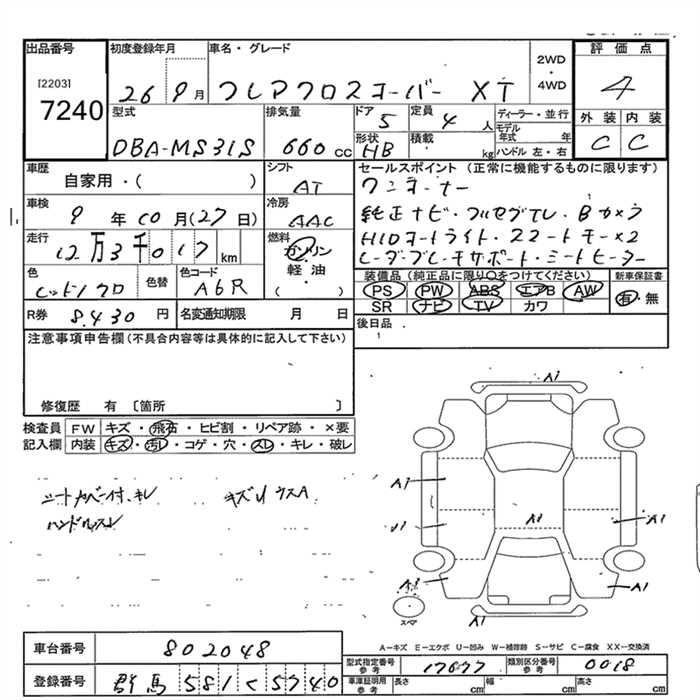 出品番号 初度登録年月 車名・グレード 2WD・4WD 評価点
[2203] 7240 26 9月 フレアクロスオーバー XT 4
型式 排気量 ドア 定員 ディーラー・並行 外装 内装
DBA-MS31S 660cc 5 4人 モデル年式 年 C C
形状 積載 ハンドル 左・右
HB kg
車歴 シフト セールスポイント (正常に機能するものに限ります)
自家用・( ) AT ワンオーナー
車検 冷房 純正ナビ・フルセグTV・Bカメラ
9年10月(27日) AAC HIDオートライト・スマートキー×2
走行 燃料 レーダブレーキサポート・シートヒーター
12万3千017km ガソリン
軽油
( )
色 色替 色コード 装備品 (純正品に限り○をつけてください) 新車保証書
A6R PS PW ABS エアB AW 有・無
SR ナビ TV カワ
R券 8,430円 名変通知期限 月 日 後日品
注意事項申告欄 (不具合内容等は具体的に記入して下さい)
修復歴 有 〔箇所 〕
検査員 FW キズ・飛石・ヒビ割・リペア跡・×要
記入欄 内装 キズ・汚レ・コゲ・穴・スレ・キレ・破レ
シートカバー付、キレ キズU ウスA
ハンドルスレ
A1
A1
A1
A1
A1
A1
A1
A1
スペア
A-キズ E-エクボ U-凹み W-補修跡 S-サビ C-腐食 XX-交換済
車台番号 802048
型式指定番号 参考 17677 類別区分番号 参考 0018
登録番号 群馬 581 く 5740
車庫証明用 参考 長さ cm 幅 cm 高さ cm